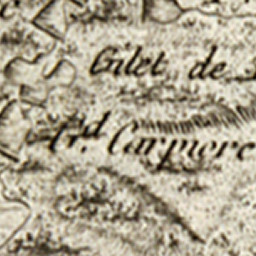 Gilet de
Gr.d Carmore